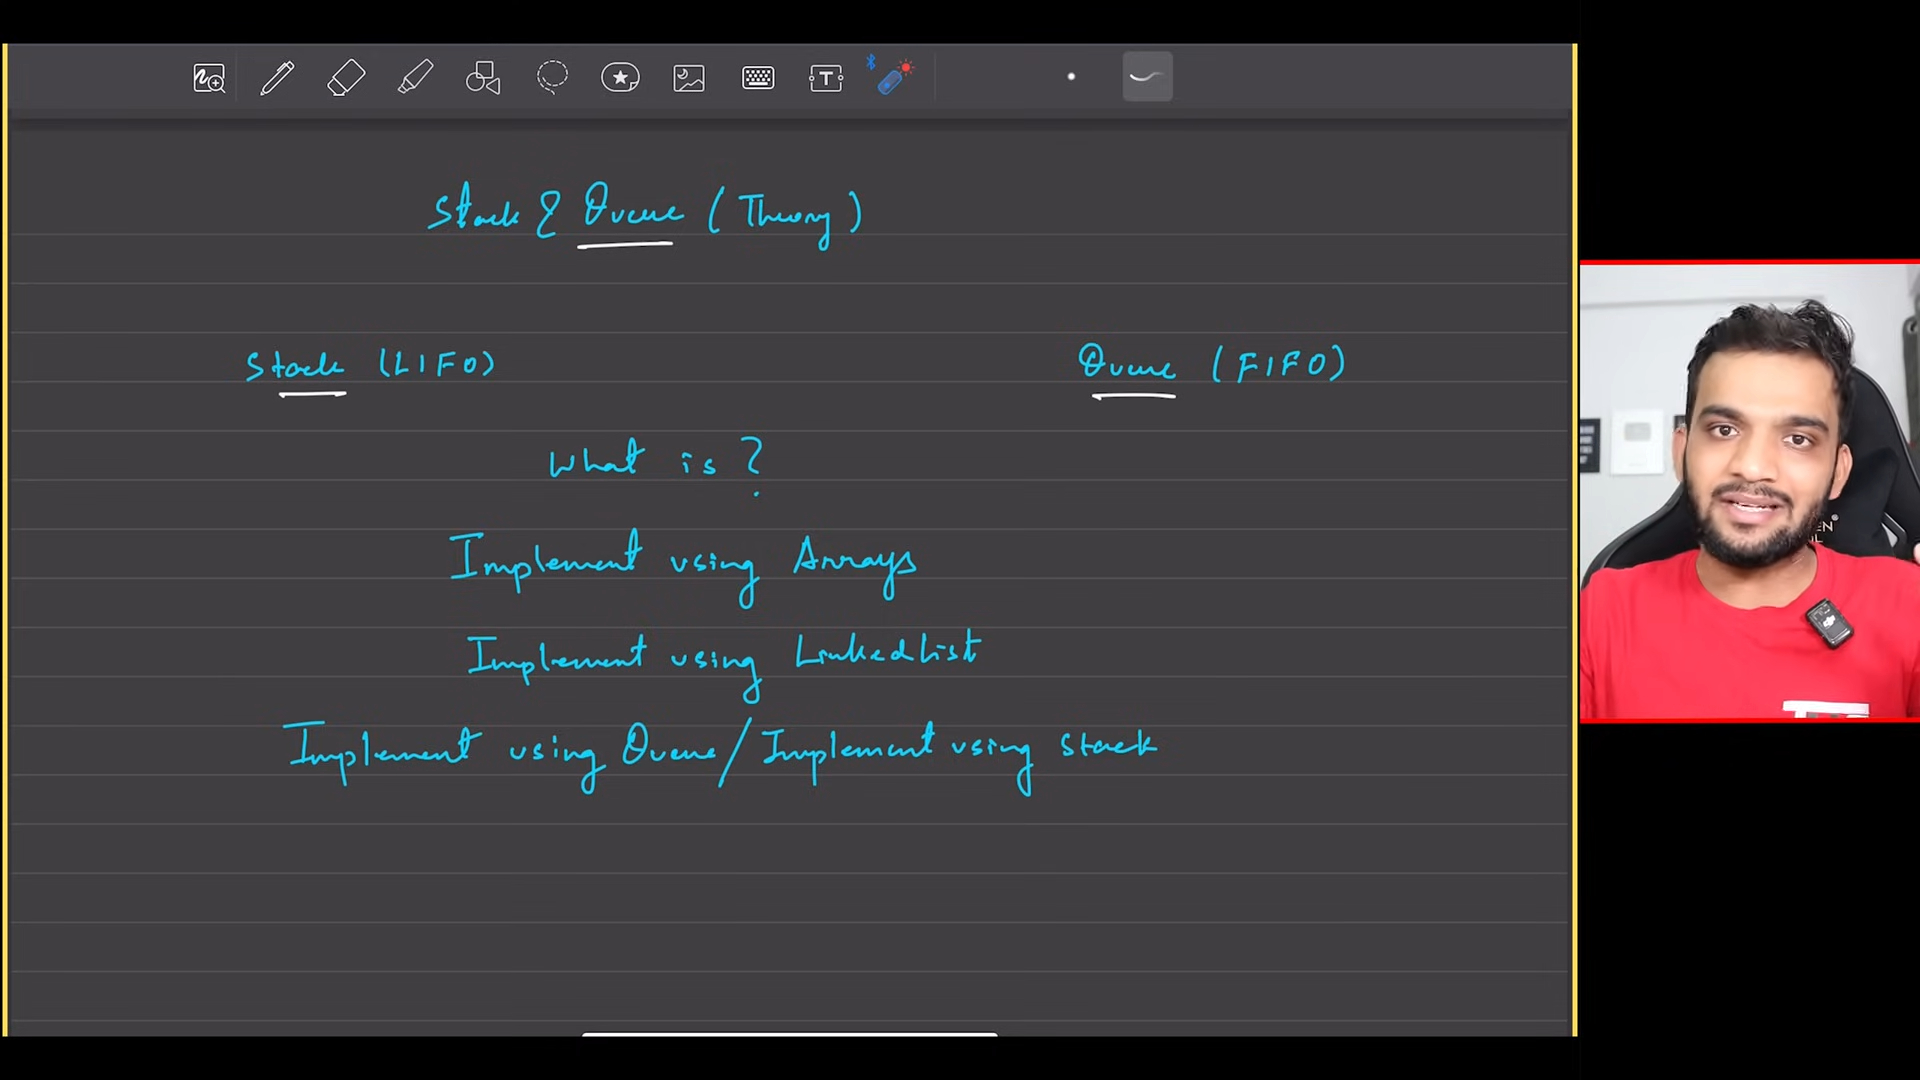 Stack & Queue (Theory)
Stack (LIFO)
Queue (FIFO)
What is ?
Implement using Arrays
Implement using LinkedList
Implement using Queue / Implement using stack